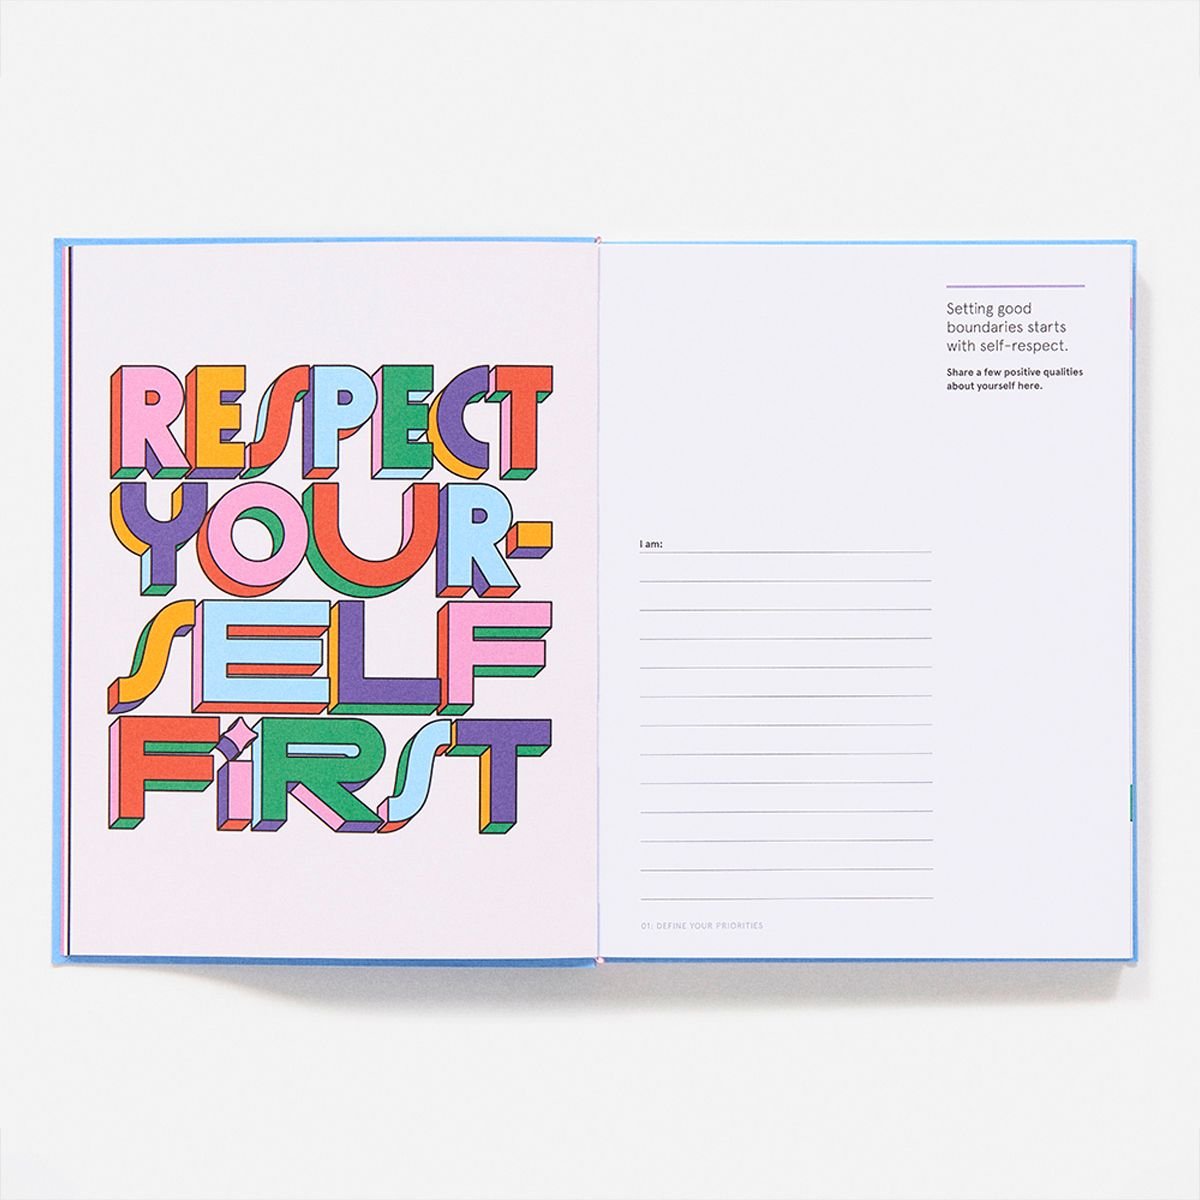 RESPECT
YOUR-
SELF
FiRST
Setting good
boundaries starts
with self-respect.
Share a few positive qualities
about yourself here.
I am:
01: DEFINE YOUR PRIORITIES